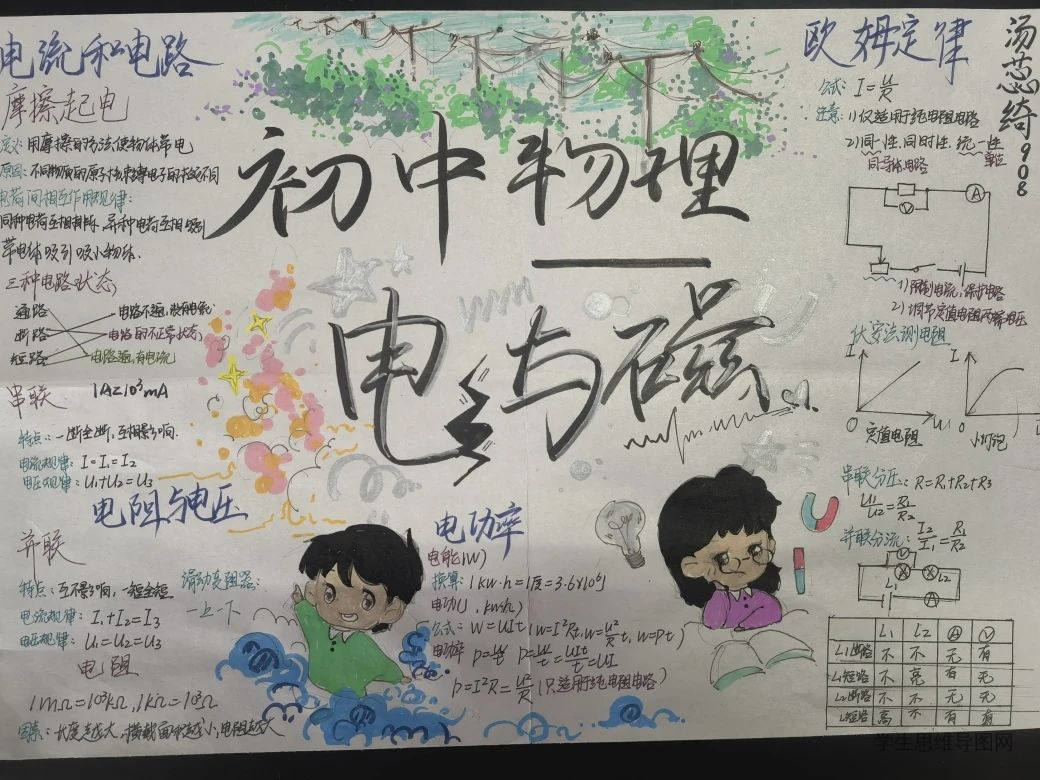 电流和电路
摩擦起电
定义:用摩擦的方法使物体带电
原因:不同物质的原子核束缚电子的本领不同
电荷间相互作用规律:
同种电荷互相排斥,异种电荷互相吸引
带电体吸引吸小物体.
三种电路状态
通路
断路
短路
电路不通,没有电流
电路的不正常状态
电路通,有电流
串联
1A=10³mA
特点:一断全断,互相影响.
电流规律:I=I₁=I₂
电压规律:U₁+U₂=U₃
电阻与电压
并联
特点:互不影响,一短全短
电流规律:I₁+I₂=I₃
电压规律:U₁=U₂=U₃
滑动变阻器:
一上一下
电阻
1mΩ=10³kΩ,1kΩ=10³Ω
因素:长度越大,横截面积越小,电阻越大
初中物理
电与磁
电功率
电能(W)
换算:1kw·h=1度=3.6×10⁶J
电功(J、kw·h)
公式:W=UIt(W=I²Rt,W=U²/R t,W=Pt)
电功率 P=W/t P=W/t=UIt/t=UI
P=I²R=U²/R(只适用于纯电阻电路)
欧姆定律
汤蕊绮 908
公式:I=U/R
注意:1)仅适用于纯电阻电路
2)同一性.同时性.统一性
同一导体电路
单位
A
V
1)限制电流,保护电路
2)调节定值电阻两端电压
伏安法测电阻
I
O
U
定值电阻
I
O
小灯泡
串联分压:R=R₁+R₂+R₃
U₁/U₂=R₁/R₂
并联分流:I₂/I₁=R₁/R₂
V
L1
L2
A
L₁ L₂ A V
L1断路 不 不 无 有
L1短路 不 亮 有 无
L₂断路 不 不 无 无
L2短路 高 不 有 有
学生思维导图网